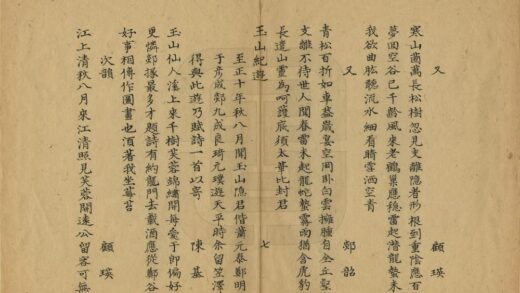 又 顧瑛
寒山萬長松樹忽見支離隱者形根到重陰應百
夢回空谷已千齡風來老鶴巢應穩雷起潛龍蟄未
我欲曲肱聽流水細看晴雪洒空青
又 鄭韶
青松百折如車蓋嚴壑空同卧白雲擁腫自全丘壑
支離不待世人聞春雷未起龍蛇蟄霧雨猶含虎豹
長遣山靈為呵護底須太華比封君
玉山紀遊 七
至正十年秋八月聞玉山隱君偕蕭元泰鄭明
于彥成郯九成良琦元璞遊天平時余留笠澤
得與此遊乃賦詩一首以寄 陳基
玉山仙人溪上來千樹芙蓉錦繡開每愛于郎偏好
更憐郯掾最多才題詩有約龍門去載酒應從鄭谷
好事相傳作圖畫也須著我坐莓苔
次韻 顧瑛
江上清秋八月來江清照見芙蓉開遠公留客可無